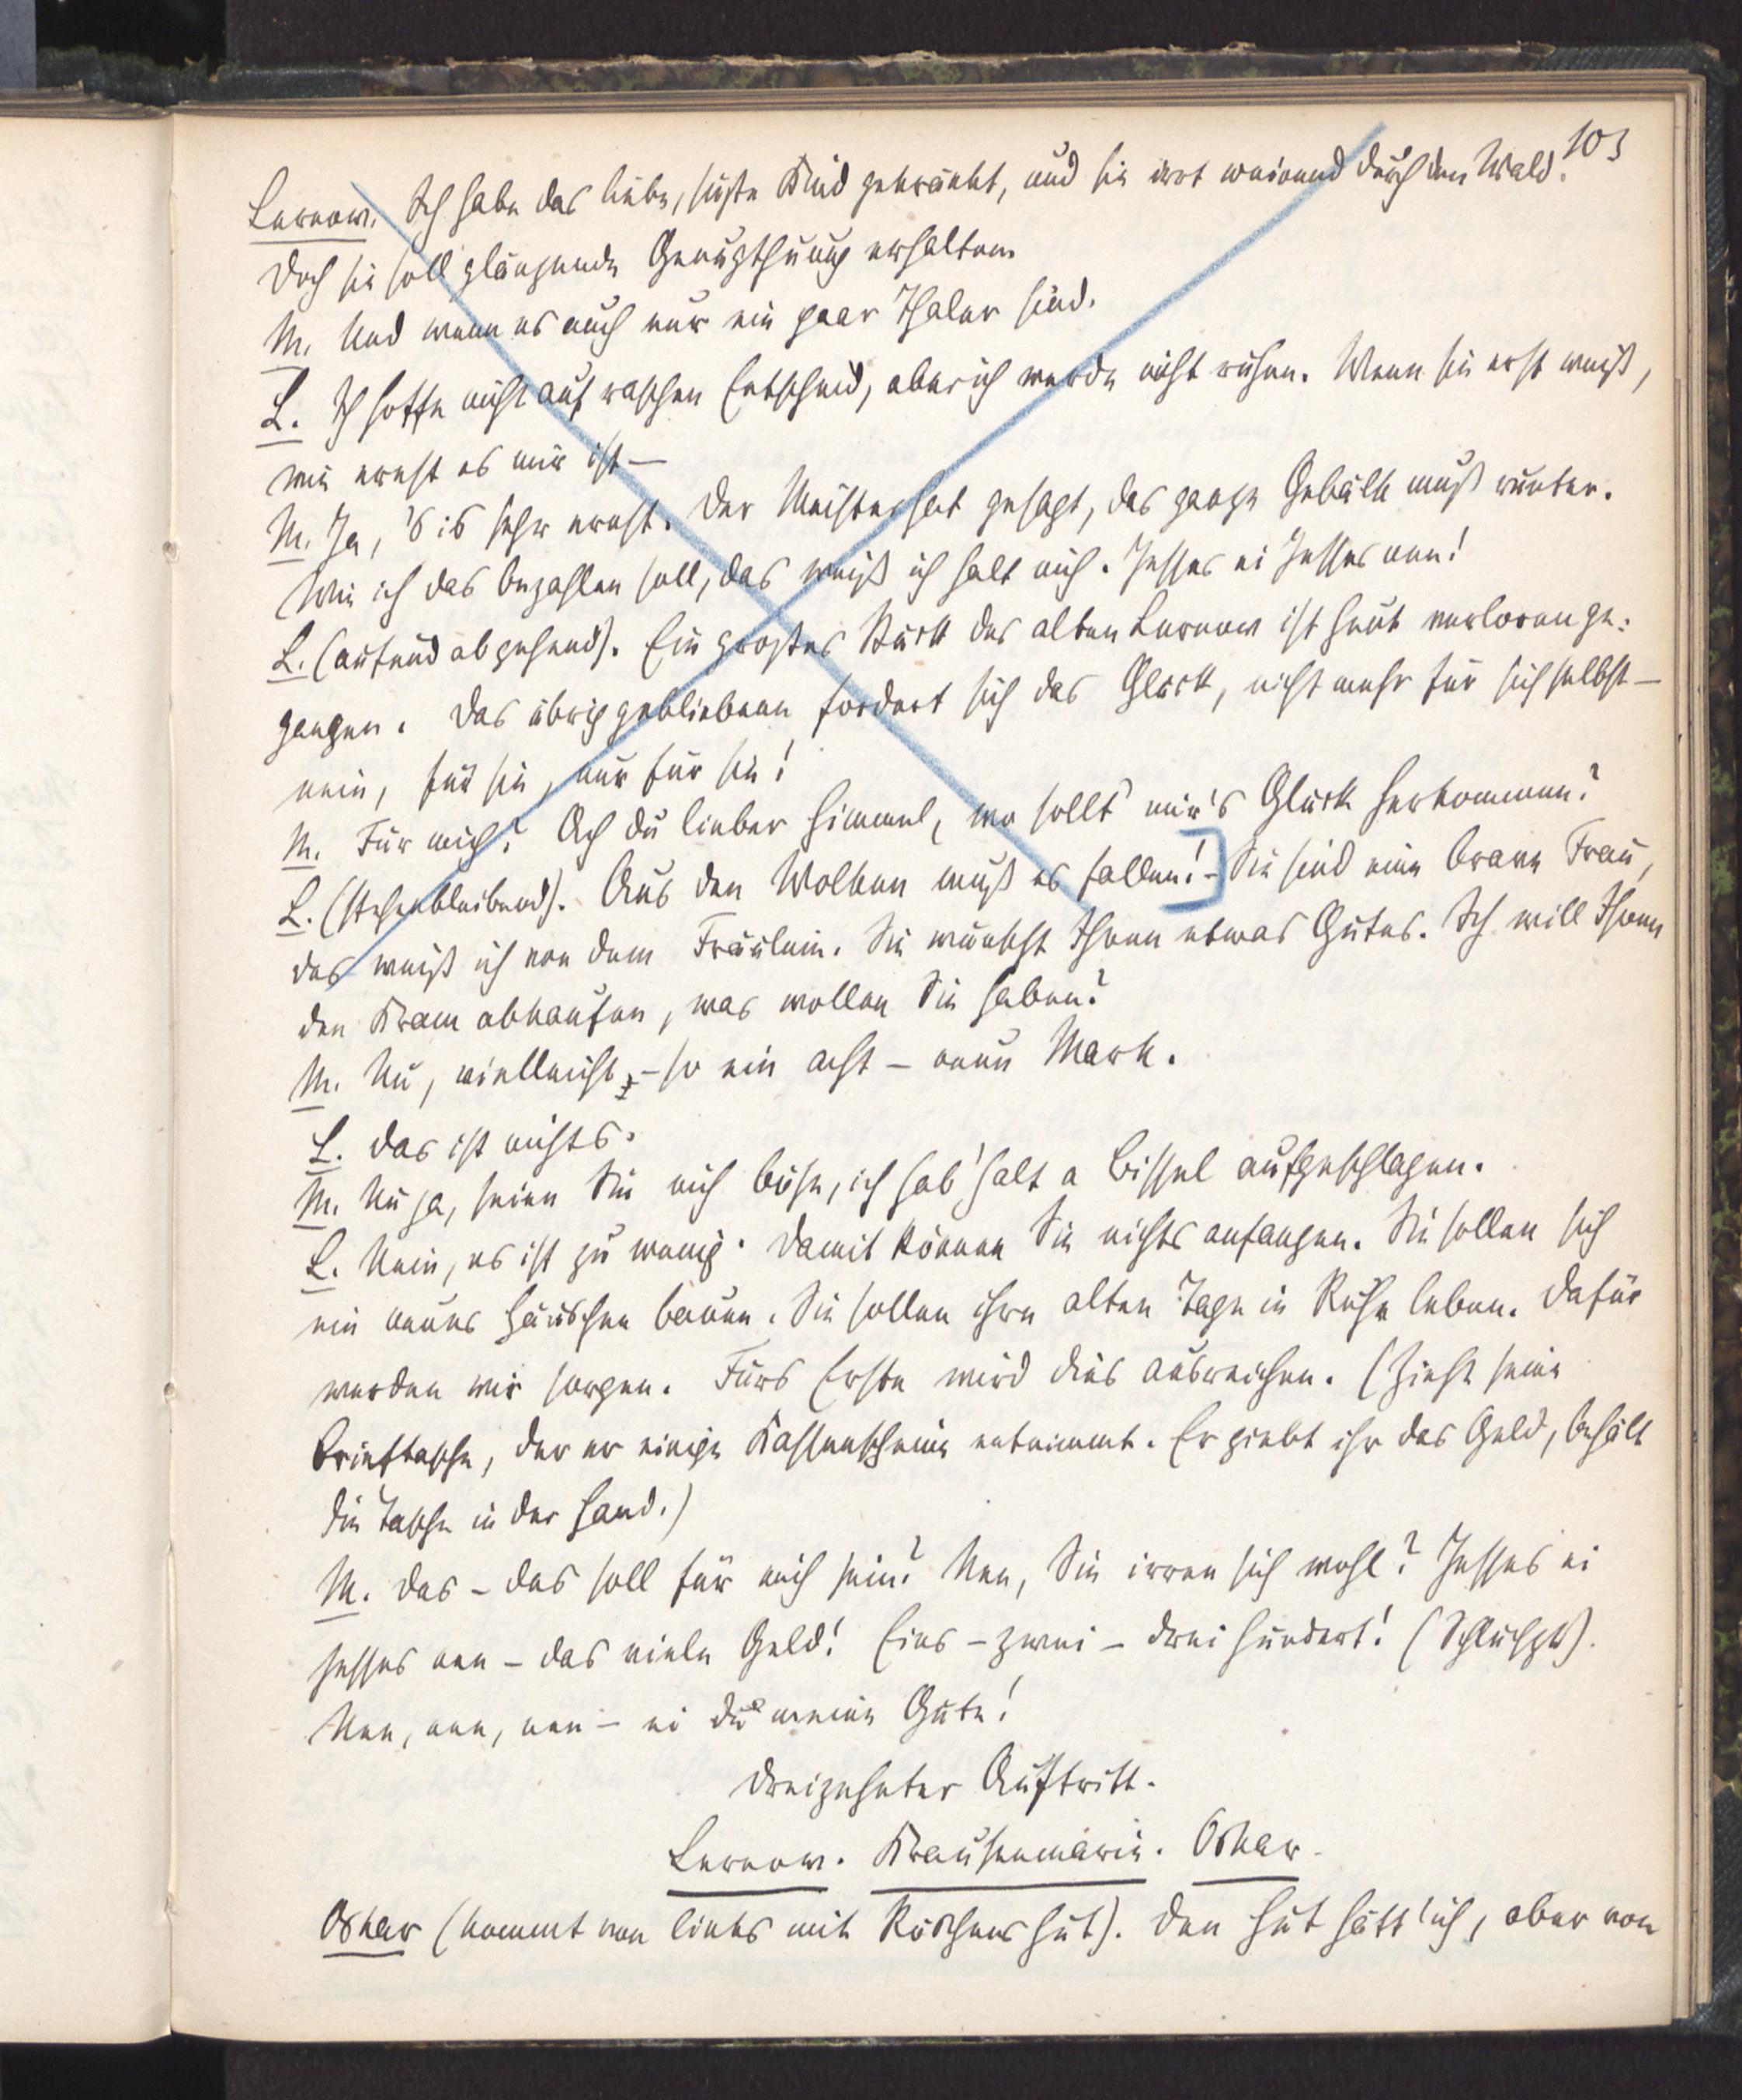 103
Lernow. Ich habe das liebe, süße Kind gekränkt, und sie irrt weinend durch den Wald.
Doch sie soll glänzende Genugthuung erhalten.
M. Und wenn es auch nur ein paar Thaler sind.
L. Ich hoffe nicht auf raschen Entscheid, aber ich werde nicht ruhen. Wenn sie erst weiß,
wie ernst es mir ist —
M. Ja, 's is sehr ernst. Der Meister hat gesagt, das ganze Gebälk muß runter.
Wie ich das bezahlen soll, das weiß ich halt nich. Jesses ei Jesses nee!
L. (auf und ab gehend). Ein großes Stück des alten Lernow ist heut verloren ge-
gangen. Das übrig gebliebene fordert sich das Glück, nicht mehr für sich selbst —
nein, für sie, nur für sie!
M. Für mich? Ach du lieber Himmel, wo sollt' mir's Glück herkommen?
L. (stehenbleibend). Aus den Wolken muß es fallen! - Sie sind eine brave Frau,
das weiß ich von dem Fräulein. Sie wünscht Ihnen etwas Gutes. Ich will Ihnen
den Kram abkaufen, was wollen Sie haben?
M. Nu, vielleicht - so ein acht - neun Mark.
L. Das ist nichts.
M. Nu ja, seien Sie nich böse, ich hab' halt a Bissel aufgeschlagen.
L. Nein, es ist zu wenig. Damit können Sie nichts anfangen. Sie sollen sich
ein neues Häuschen bauen. Sie sollen ihre alten Tage in Ruhe leben. Dafür
werden wir sorgen. Fürs Erste wird dies ausreichen. (Zieht seine
Brieftasche, der er einige Kassenscheine entnimmt. Er giebt ihr das Geld, behält
die Tasche in der Hand.)
M. Das - das soll für mich sein? Nee, Sie irren sich wohl? Jesses ei
jesses nee - das viele Geld! Eins - zwei - drei hundert! (Schluchzt).
Nee, nee, nee - ei du meine Güte!
Dreizehnter Auftritt.
Lernow. Krausenmarie. Oskar.
Oskar (kommt von links mit Röschens Hut). Den Hut hätt' ich, aber von